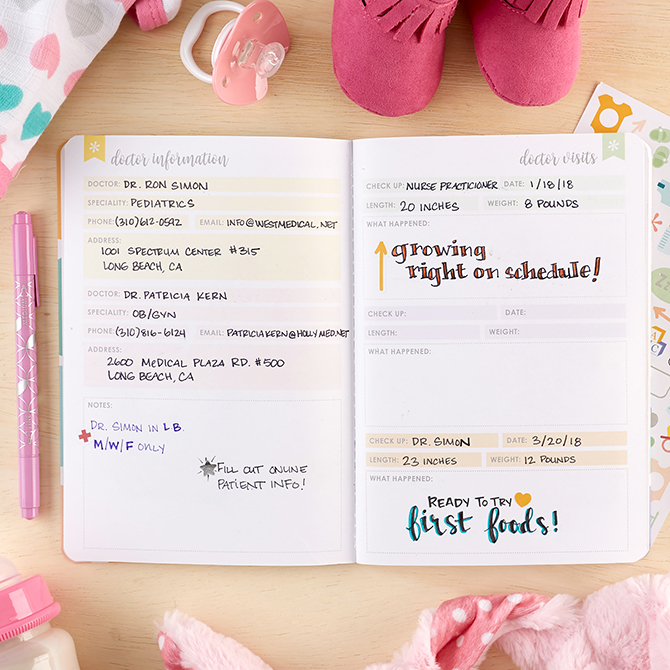 doctor information
DOCTOR: DR. RON SIMON
SPECIALITY: PEDIATRICS
PHONE: (310)612-0592 EMAIL: INFO@WESTMEDICAL.NET
ADDRESS:
1001 SPECTRUM CENTER #315
LONG BEACH, CA
DOCTOR: DR. PATRICIA KERN
SPECIALITY: OB/GYN
PHONE: (310)816-6124 EMAIL: PATRICIAKERN@HOLLYMED.NET
ADDRESS:
2600 MEDICAL PLAZA RD. #500
LONG BEACH, CA
NOTES:
DR. SIMON IN LB.
M/W/F ONLY
FILL OUT ONLINE
PATIENT INFO!
doctor visits
CHECK UP: NURSE PRACTICIONER DATE: 1/18/18
LENGTH: 20 INCHES WEIGHT: 8 POUNDS
WHAT HAPPENED:
growing
right on schedule!
CHECK UP: DATE:
LENGTH: WEIGHT:
WHAT HAPPENED:
CHECK UP: DR. SIMON DATE: 3/20/18
LENGTH: 23 INCHES WEIGHT: 12 POUNDS
WHAT HAPPENED:
READY TO TRY
first foods!